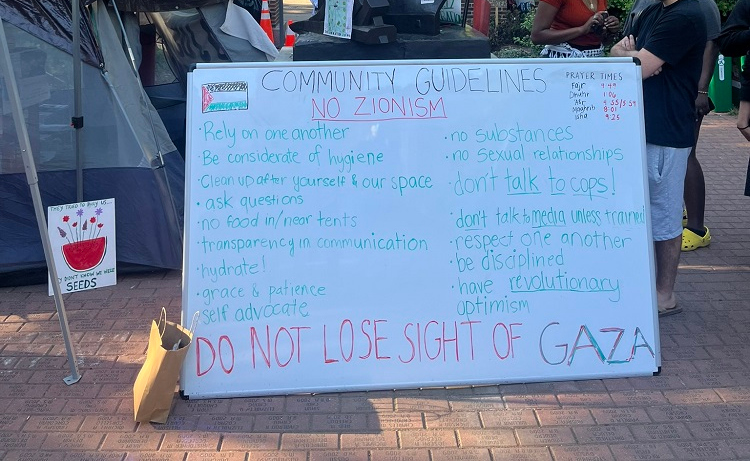 COMMUNITY GUIDELINES
NO ZIONISM
PRAYER TIMES
Fajr 4:49
Dhuhr 1:06
Asr 4:55/5:59
Maghrib 8:01
Isha 9:25
• Rely on one another
• Be considerate of hygiene
• Clean up after yourself & our space
• ask questions
• no food in/near tents
• transparency in communication
• hydrate!
• grace & patience
• self advocate
• no substances
• no sexual relationships
• don't talk to cops!
• don't talk to media unless trained
• respect one another
• be disciplined
• have revolutionary
optimism
DO NOT LOSE SIGHT OF GAZA
THEY TRIED TO BURY US...
DON'T KNOW WE WERE
SEEDS